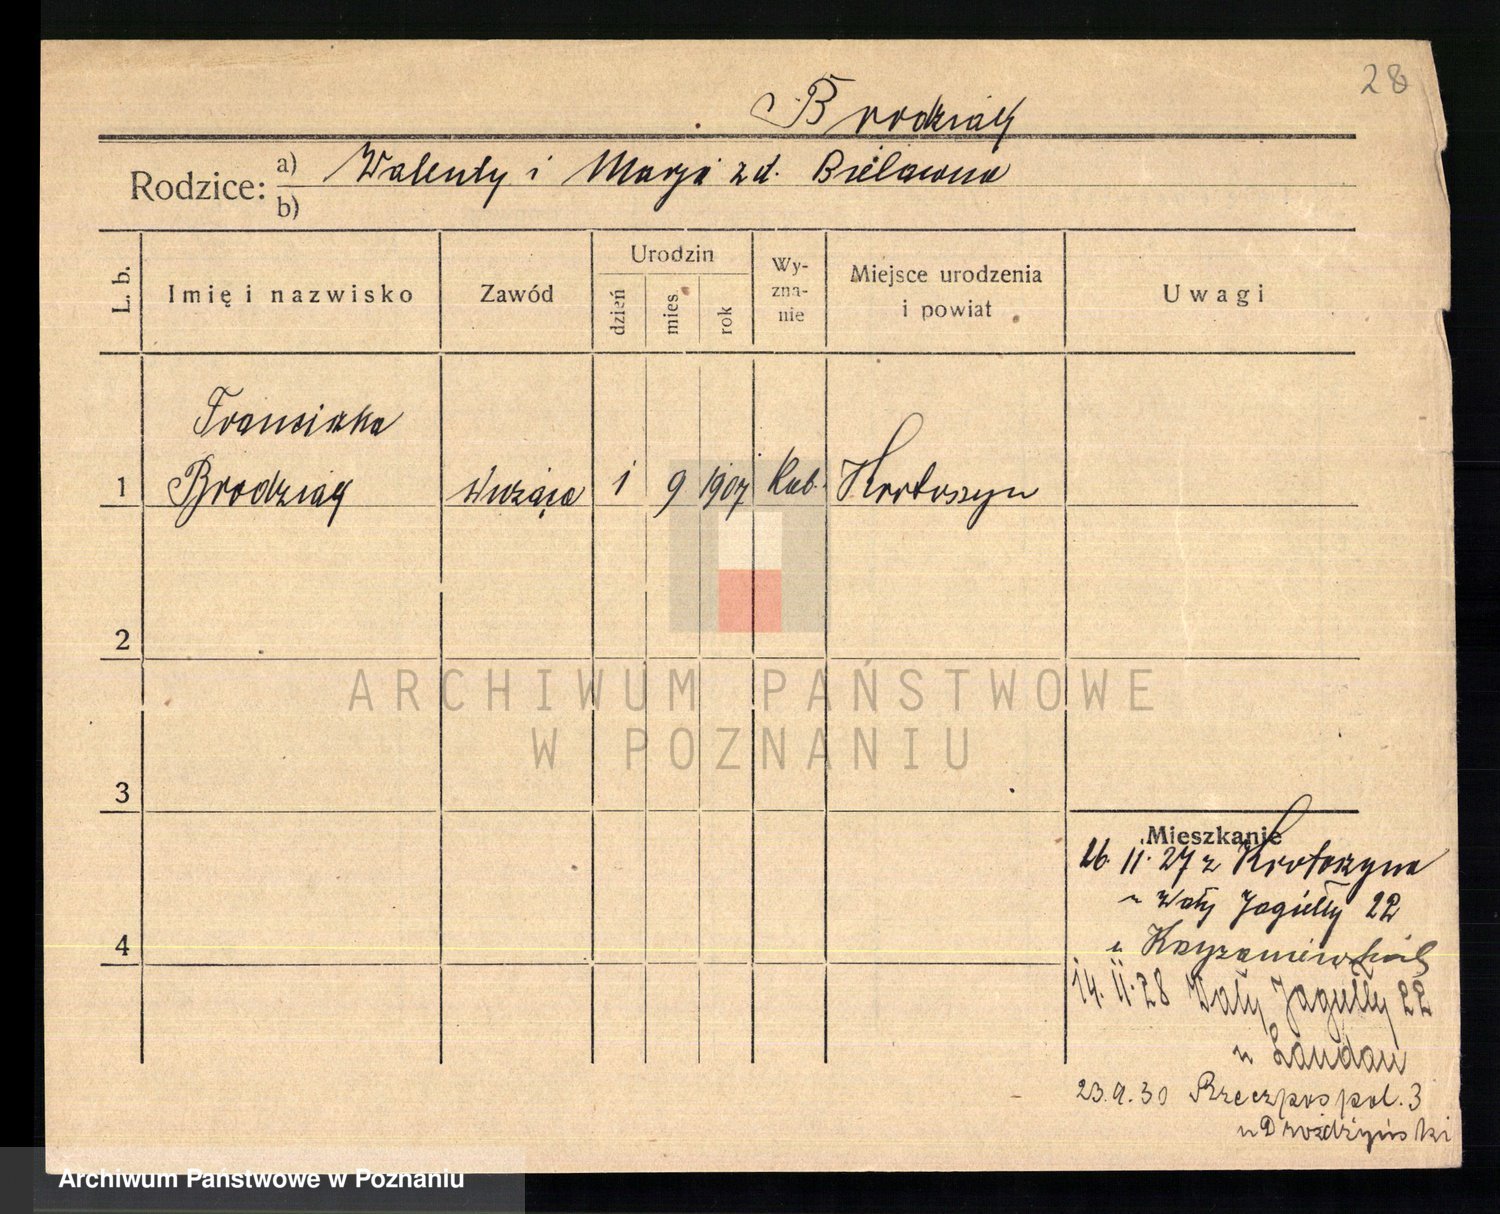 28
Brodziak
Rodzice: a) Walenty i Marja z d. Bielawna
b)
L. b.
Imię i nazwisko
Zawód
Urodzin
dzień
mies.
rok
Wy-
zna-
nie
Miejsce urodzenia
i powiat
Uwagi
Franciszka
1 Brodziak służąca 1 9 1907 kat. Krotoszyn
2
ARCHIWUM PAŃSTWOWE
W POZNANIU
3
Mieszkanie
26.11.27 z Krotoszyna
Wały Jagiełły 22
4
14.11.28 Wały Jagiełły 22
u Landau
23.9.30 Rzeczpospol. 3
u Drożdżyński
Archiwum Państwowe w Poznaniu